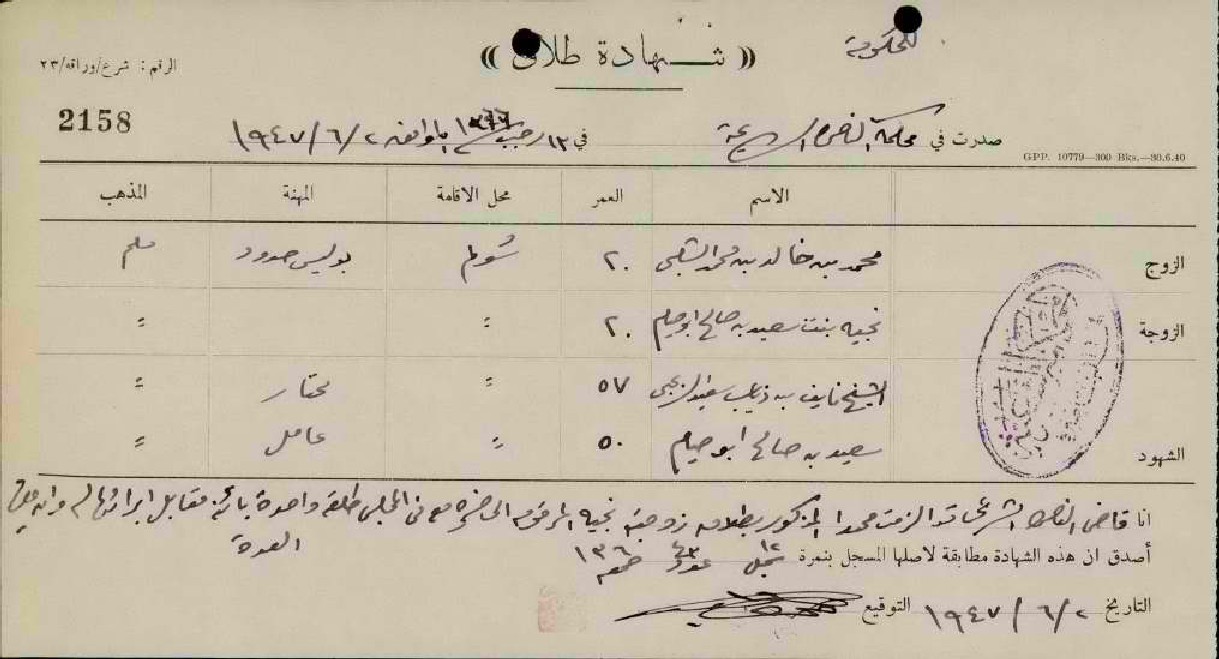 للحكومة
« شهادة طلاق »
الرقم : شرع/وراقه/٢٣
2158
صدرت في محكمة الناصرة الشرعية في ١٣ رجب ١٣٦٦ الموافق ١٩٤٧/٦/٢
GPP. 10779—300 Bks.—30.6.40
الاسم العمر محل الاقامة المهنة المذهب
الزوج محمد بن خالد بن محمد ٢٠ شولم بوليس حدود مسلم
الزوجة نجيه بنت سعيد بن صالح ابو صيام ٢٠ " "
الشيخ نايف بن ذياب سعيد الزعبي ٥٧ " مختار "
الشهود سعيد بن صالح ابو صيام ٥٠ " عامل "
انا قاضي الناصرة الشرعي قد الزمت محمدا المذكور بطلاق زوجته نجيه المرقومة الحاضرة معه في المجلس طلقة واحدة بائنة مقابل ابرائها له
العدة
أصدق ان هذه الشهادة مطابقة لاصلها المسجل بنمرة ١٢ سجل عدد ٤٣ صحيفة ١٣٦
التاريخ ١٩٤٧/٦/٢ التوقيع